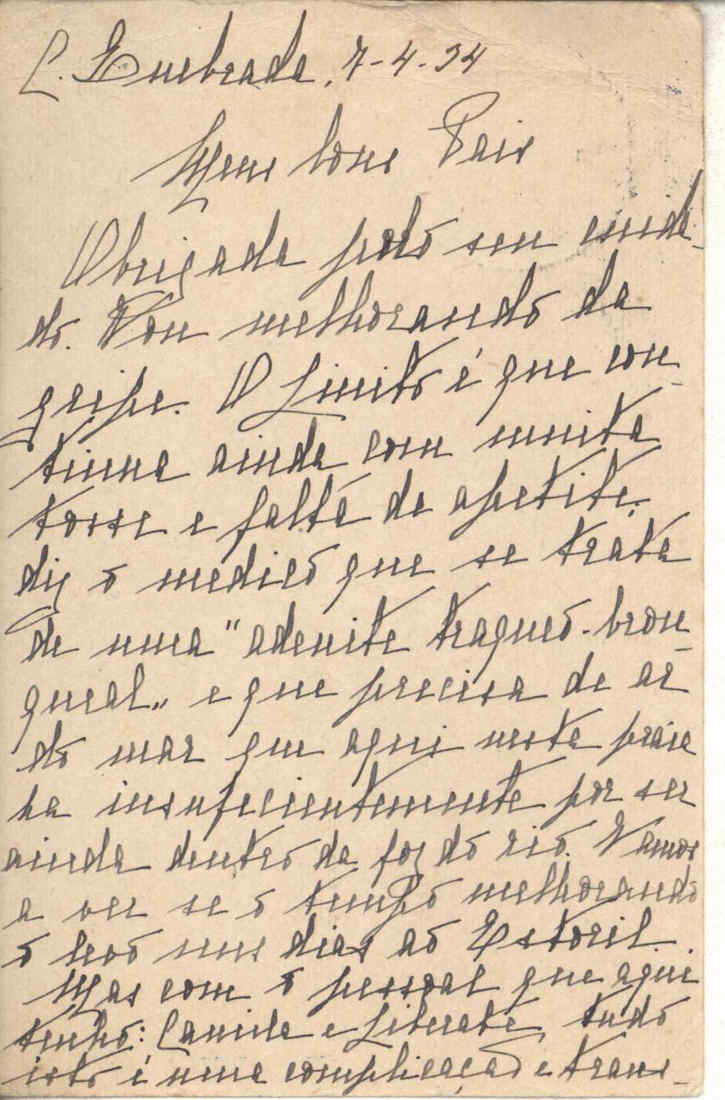 C. Quebrada, 7-4-34
Meus bons Pais
Obrigada pelo seu cuida-
do. Vou melhorando da
gripe. O Luisito é que con-
tinua ainda com muita
tosse e falta de apetite.
diz o medico que se trata
de uma "adenite traqueo-bron-
queal" e que precisa de ar
do mar que aqui nesta praia
ha insuficientemente por ser
ainda dentro da foz do rio. Vamos
a ver se o tempo melhorando
o levo uns dias ao Estoril.
Mas com o pessoal que aqui
tenho: Camila e Liberata, tudo
isto é uma complicação e trans-